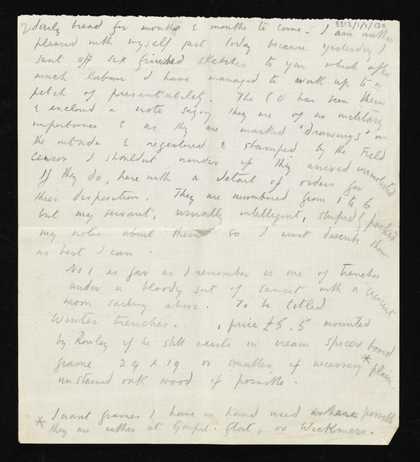 2) daily bread for months & months to come. I am rather
pleased with myself just today because yesterday I
sent off six finished sketches to you which after
much labour I have managed to work up to a
pitch of presentability. The CO has seen them
& enclosed a note saying they are of no military
importance & as they are marked "Drawings" on
the outside & registered & stamped by the Field
Censor I shouldn't wonder if they arrived unmolested
If they do, here with a detail of orders for
their disposition. They are numbered from 1 to 6
but my servant, usually intelligent, stupidly packed
my notes about them so I must describe them
as best I can.
No 1 as far as I remember is one of trenches
under a bloody sort of sunset with a crescent
moon sailing above. To be titled
Winter trenches. , price £5.5 mounted
by Rowley if he still exists in cream speced board
frame 24 x 19 or smaller if necessary * plain
unstained oak wood if possible.
* I want frames I have in hand used where possible
They are either at Gospel. Flat, or Wickmere.